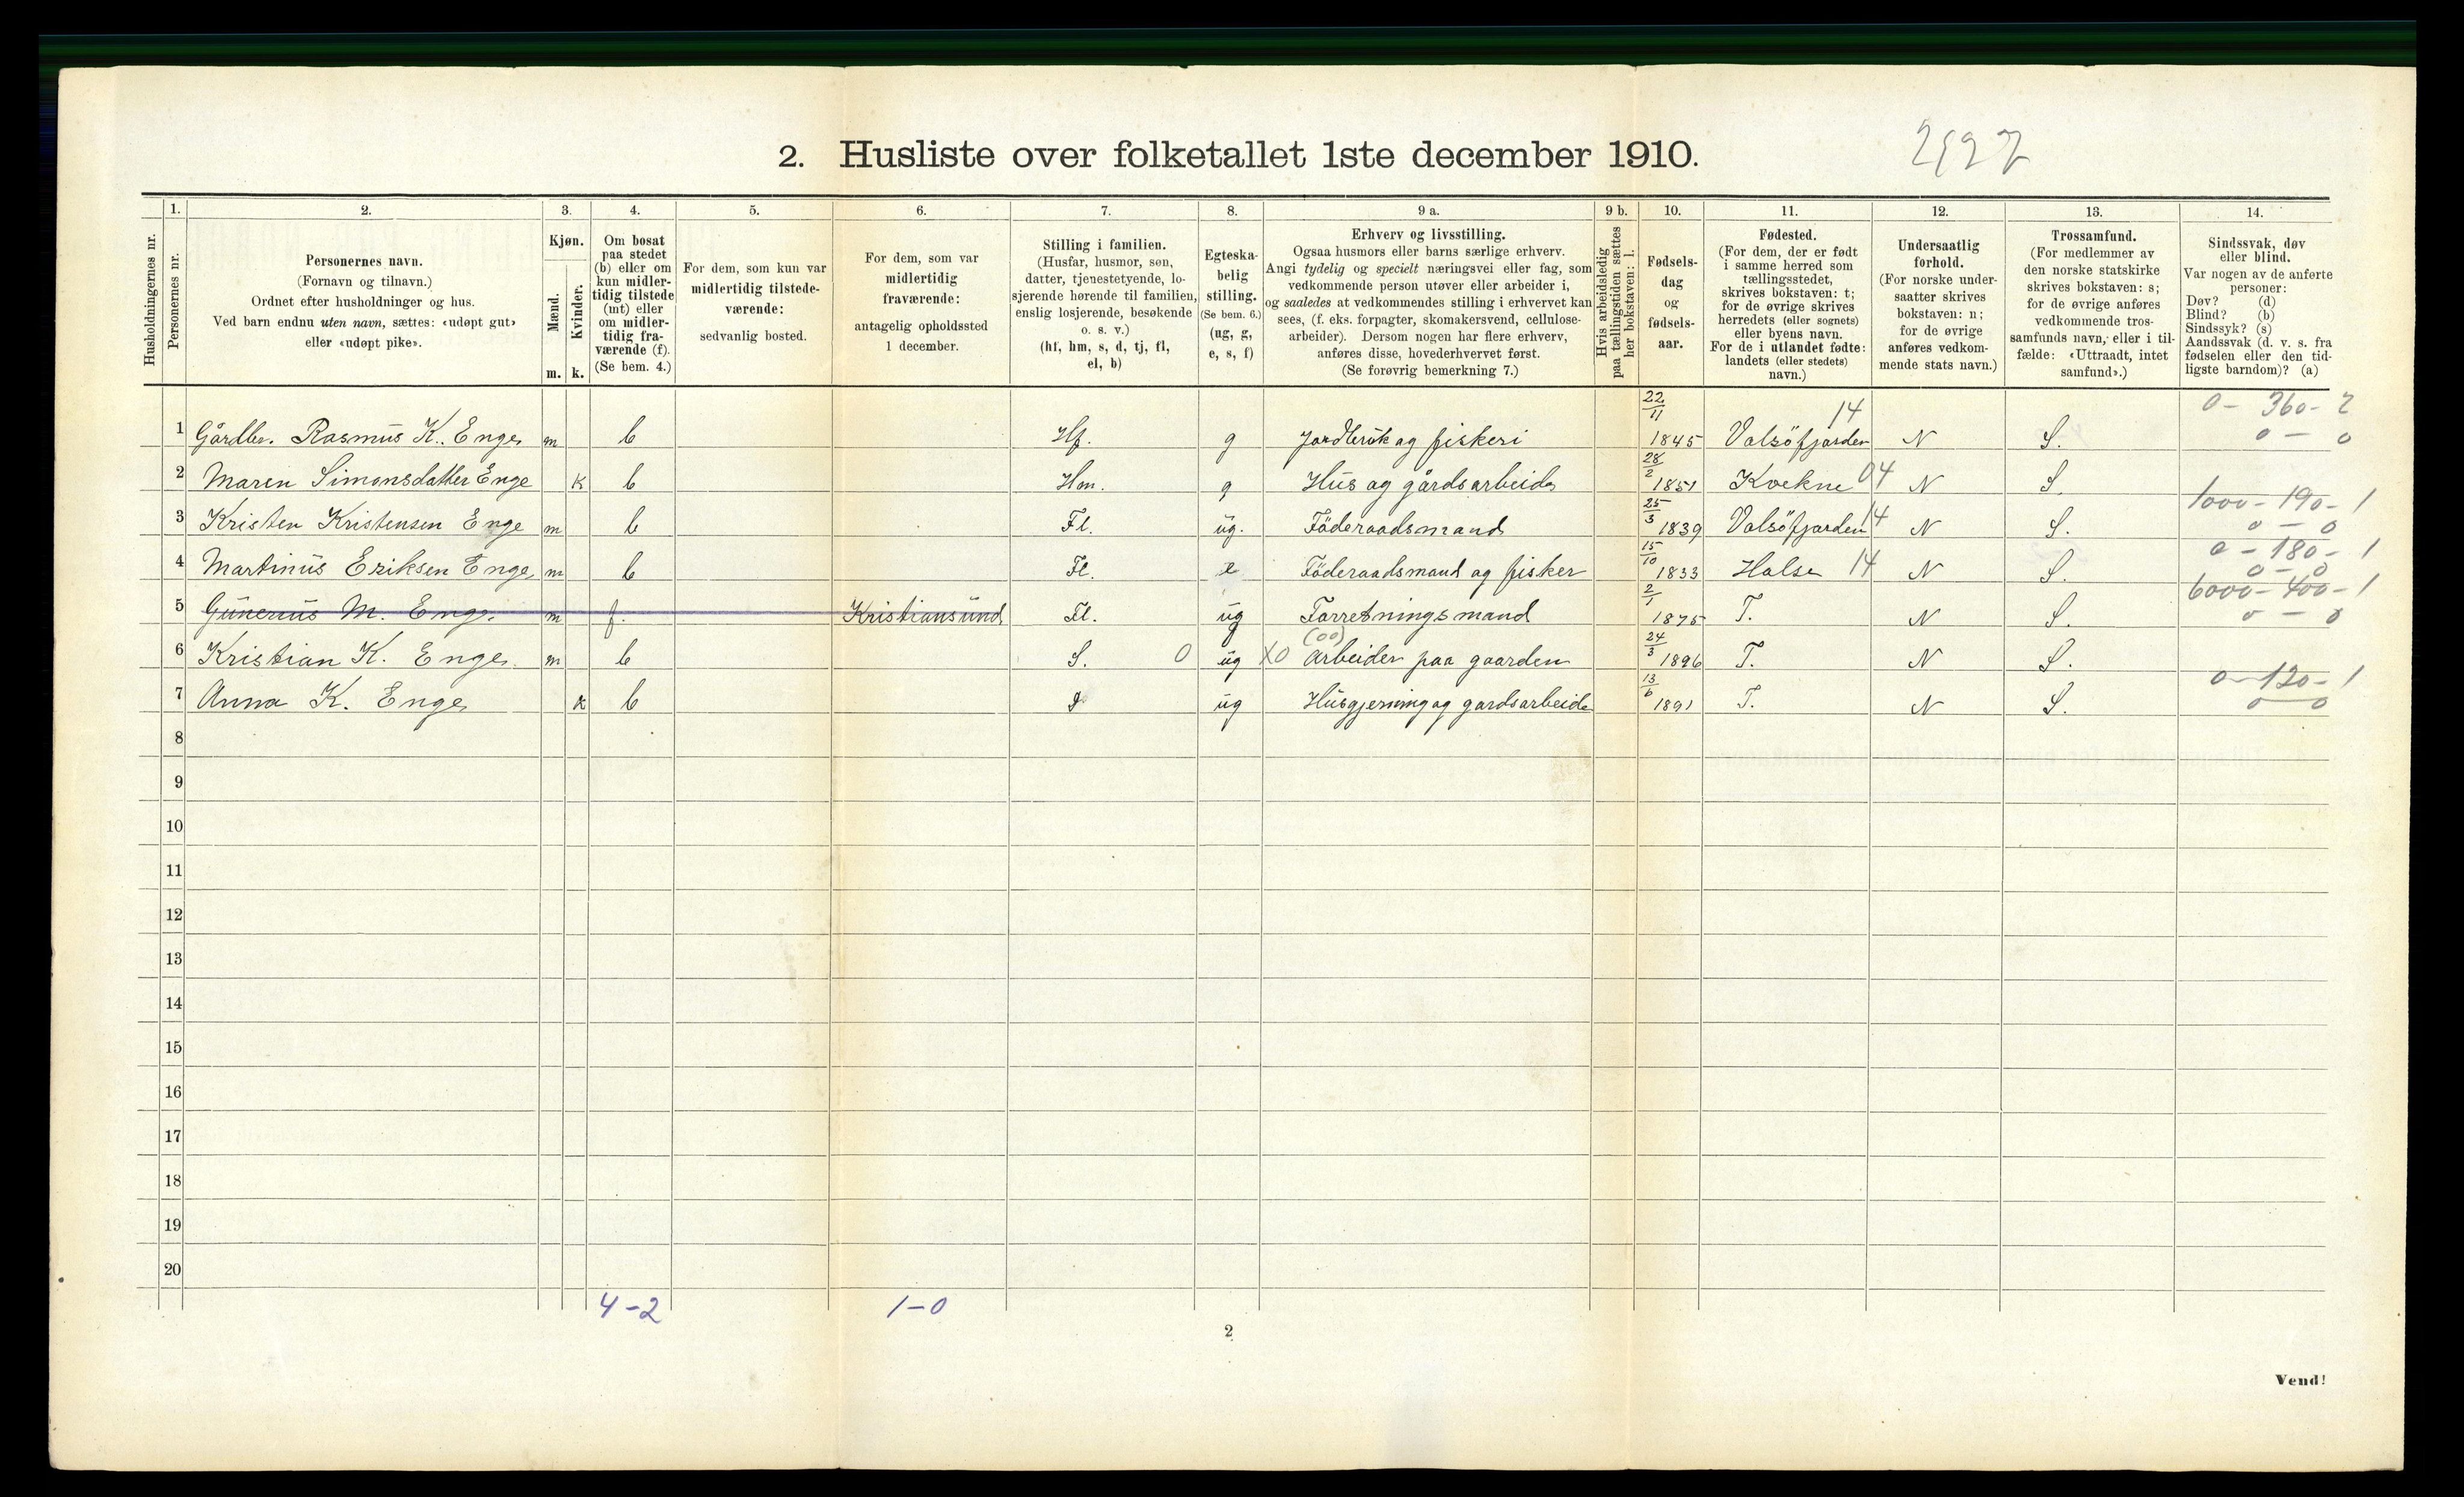 2. Husliste over folketallet 1ste december 1910.
Husholdningernes nr.
1. Personernes nr.
2. Personernes navn. (Fornavn og tilnavn.) Ordnet efter husholdninger og hus. Ved barn endnu uten navn, sættes: «udøpt gut» eller «udøpt pike».
3. Kjøn. Mænd. m. Kvinder. k.
4. Om bosat paa stedet (b) eller om kun midlertidig tilstede (mt) eller om midlertidig fraværende (f). (Se bem. 4.)
5. For dem, som kun var midlertidig tilstedeværende: sedvanlig bosted.
6. For dem, som var midlertidig fraværende: antagelig opholdssted 1 december.
7. Stilling i familien. (Husfar, husmor, søn, datter, tjenestetyende, losjerende hørende til familien, enslig losjerende, besøkende o. s. v.) (hf, hm, s, d, tj, fl, el, b)
8. Egteskabelig stilling. (Se bem. 6.) (ug, g, e, s, f)
9 a. Erhverv og livsstilling. Ogsaa husmors eller barns særlige erhverv. Angi tydelig og specielt næringsvei eller fag, som vedkommende person utøver eller arbeider i, og saaledes at vedkommendes stilling i erhvervet kan sees, (f. eks. forpagter, skomakersvend, cellulosearbeider). Dersom nogen har flere erhverv, anføres disse, hovederhvervet først. (Se forøvrig bemerkning 7.)
9 b. Hvis arbeidsledig paa tællingstiden sættes her bokstaven: l.
10. Fødselsdag og fødselsaar.
11. Fødested. (For dem, der er født i samme herred som tællingsstedet, skrives bokstaven: t; for de øvrige skrives herredets (eller sognets) eller byens navn. For de i utlandet fødte: landets (eller stedets) navn.)
12. Undersaatlig forhold. (For norske undersaatter skrives bokstaven: n; for de øvrige anføres vedkommende stats navn.)
13. Trossamfund. (For medlemmer av den norske statskirke skrives bokstaven: s; for de øvrige anføres vedkommende trossamfunds navn, eller i tilfælde: «Uttraadt, intet samfund».)
14. Sindssvak, døv eller blind. Var nogen av de anførte personer: Døv? (d) Blind? (b) Sindssyk? (s) Aandssvak (d. v. s. fra fødselen eller den tidligste barndom)? (a)
0 - 360 - 2
1 Gårdbr. Rasmus K. Enge m b Hf. g Jordbruk og fiskeri 22/11 1845 Valsöfjorden 14 N S. 0 - 0
2 Maren Simonsdatter Enge k b Hm. g Hus og gårdsarbeide 28/2 1851 Kvekne 04 N S.
1000 - 190 - 1
3 Kristen Kristensen Enge m b Fl. ug. Föderaadsmand 25/3 1839 Valsöfjorden 14 N S. 0 - 0
0 - 180 - 1
4 Martinus Eriksen Enge m b Fl. e Föderaadsmand og fisker 15/10 1833 Halse 14 N S. 0 - 0
6000 - 400 - 1
5 Gunerius M. Enge m f. Kristiansund Fl. ug Forretningsmand 2/1 1875 T. N S. 0 - 0
6 Kristian K. Enge m b S. 0 ug X0 (00) Arbeider paa gaarden 24/3 1896 T. N S.
0 - 120 - 1
7 Anna K. Enge k b d ug Husgjerning og gardsarbeide 13/6 1891 T. N S. 0 - 0
8
9
10
11
12
13
14
15
16
17
18
19
20
4-2 1-0
2
Vend!